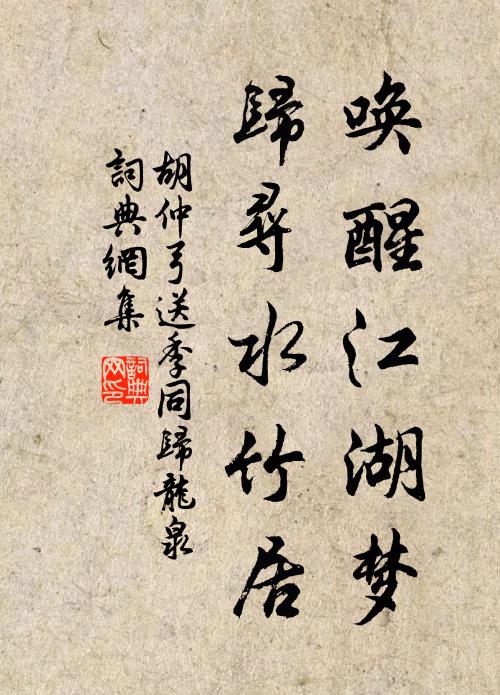 唤醒江湖梦
歸尋水竹居
胡仲弓送季同歸龍泉
詞典網集
詞典网印